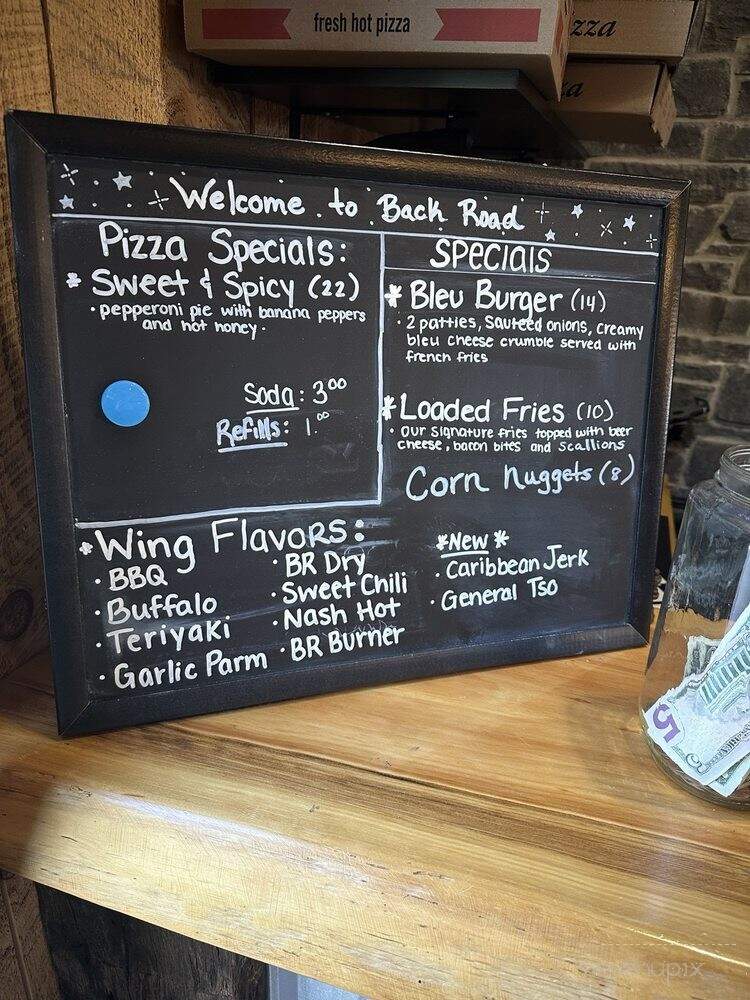 fresh hot pizza
zza
a
Welcome to Back Road
Pizza Specials:
* Sweet & Spicy (22)
• pepperoni pie with banana peppers
and hot honey.
Soda: 3⁰⁰
Refills: 1.⁰⁰
Specials
* Bleu Burger (14)
• 2 patties, Sauteed onions, creamy
bleu cheese crumble served with
french fries
* Loaded Fries (10)
• our signature fries topped with beer
cheese, bacon bites and scallions
Corn nuggets (8)
* Wing Flavors:
• BBQ
• Buffalo
• Teriyaki
• Garlic Parm
• BR Dry
• Sweet Chili
• Nash Hot
• BR Burner
*New*
• Caribbean Jerk
• General Tso
5